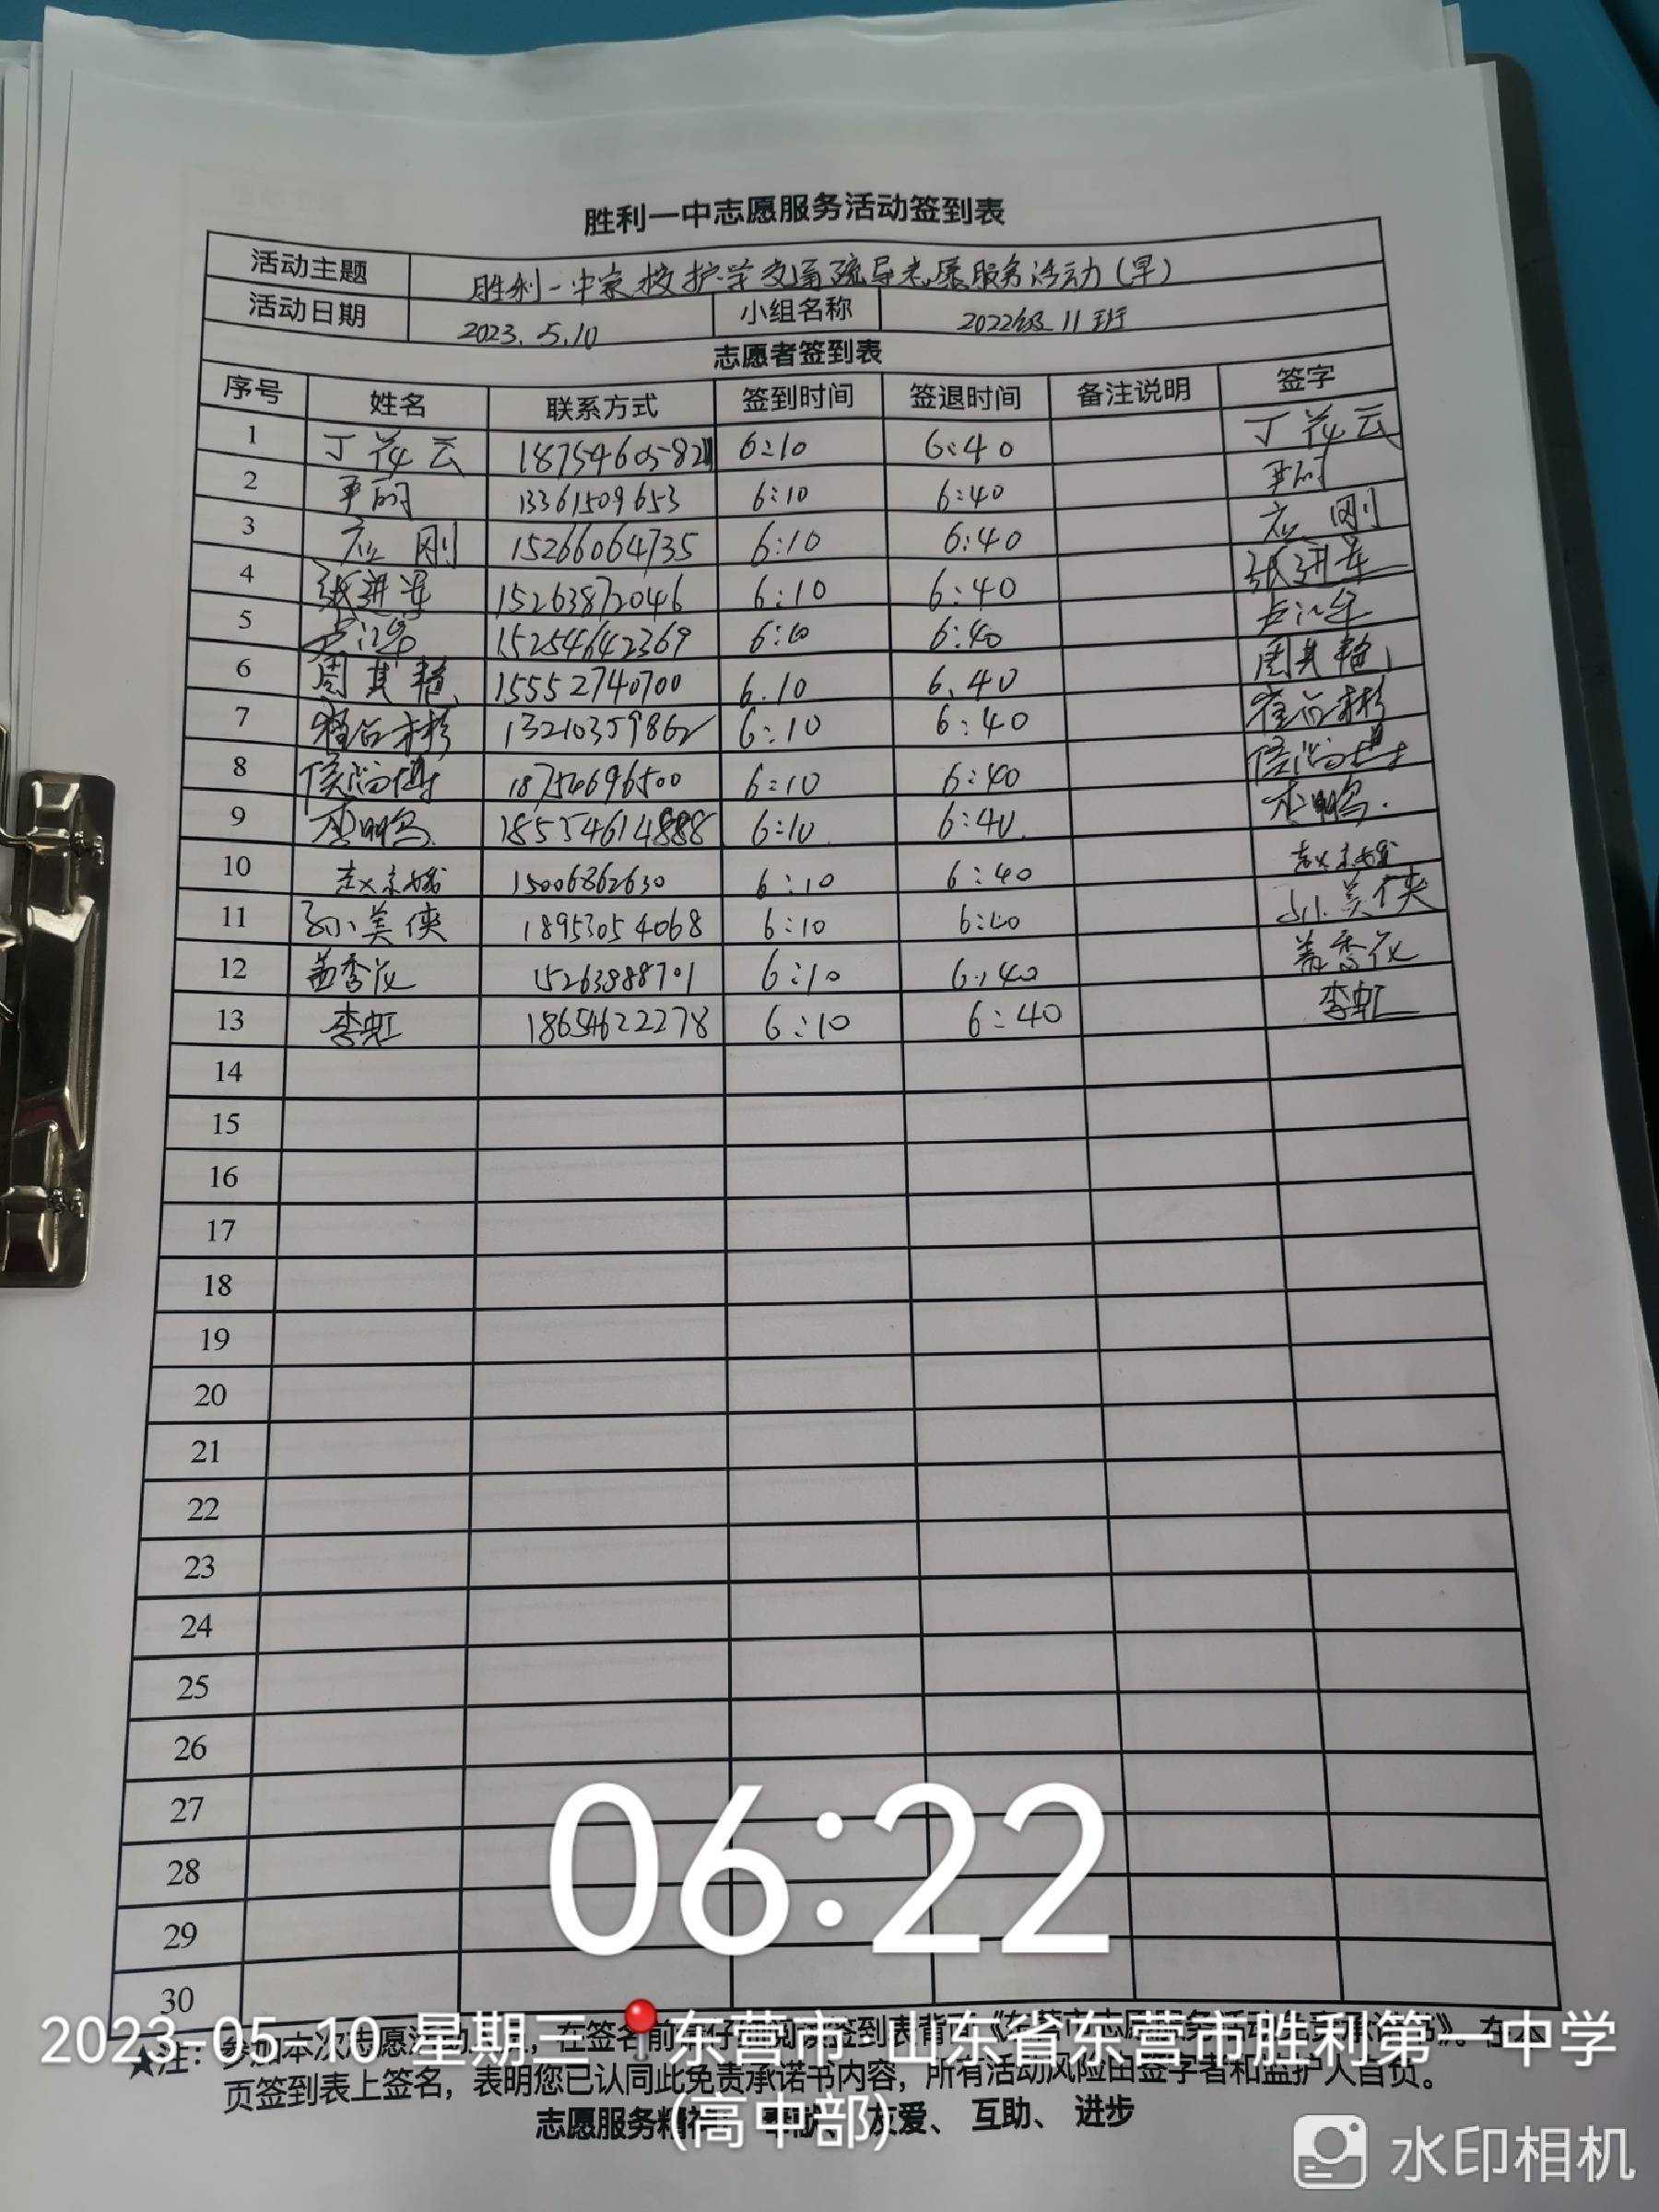 胜利一中志愿服务活动签到表
活动主题 胜利一中家校护学交通疏导志愿服务活动(早)
活动日期 2023.5.10 小组名称 2022级11班
志愿者签到表
序号 姓名 联系方式 签到时间 签退时间 备注说明 签字
1 丁花云 6:10 6:40 丁花云
2 13361509653 6:10 6:40
3 应刚 15266064735 6:10 6:40 应刚
4 张进军 15263872046 6:10 6:40 张进军
5 15254642369 6:10 6:40
6 周其艳 15552740700 6.10 6.40 周其艳
7 13210359862 6:10 6:40
8 侯尚博 6:10 6:40 侯尚博
9 李明鸟 18554614888 6:10 6:40.
10 15006862630 6:10 6:40
11 孙美侠 18953054068 6:10 6:40 孙美侠
12 盖秀花 15263988701 6:10 6:40 盖秀花
13 李虹 18654622278 6:10 6:40 李虹
14
15
16
17
18
19
20
21
22
23
24
25
26
27
28
29
30
06:22
2023-05-10 星期三 东营市·山东省东营市胜利第一中学
(高中部)
★注:参加本次志愿活动 在签名前 签到表背
页签到表上签名,表明您已认同此免责承诺书内容,所有活动风险由签字者和监护人自负。
志愿服务精神 友爱、互助、进步
水印相机